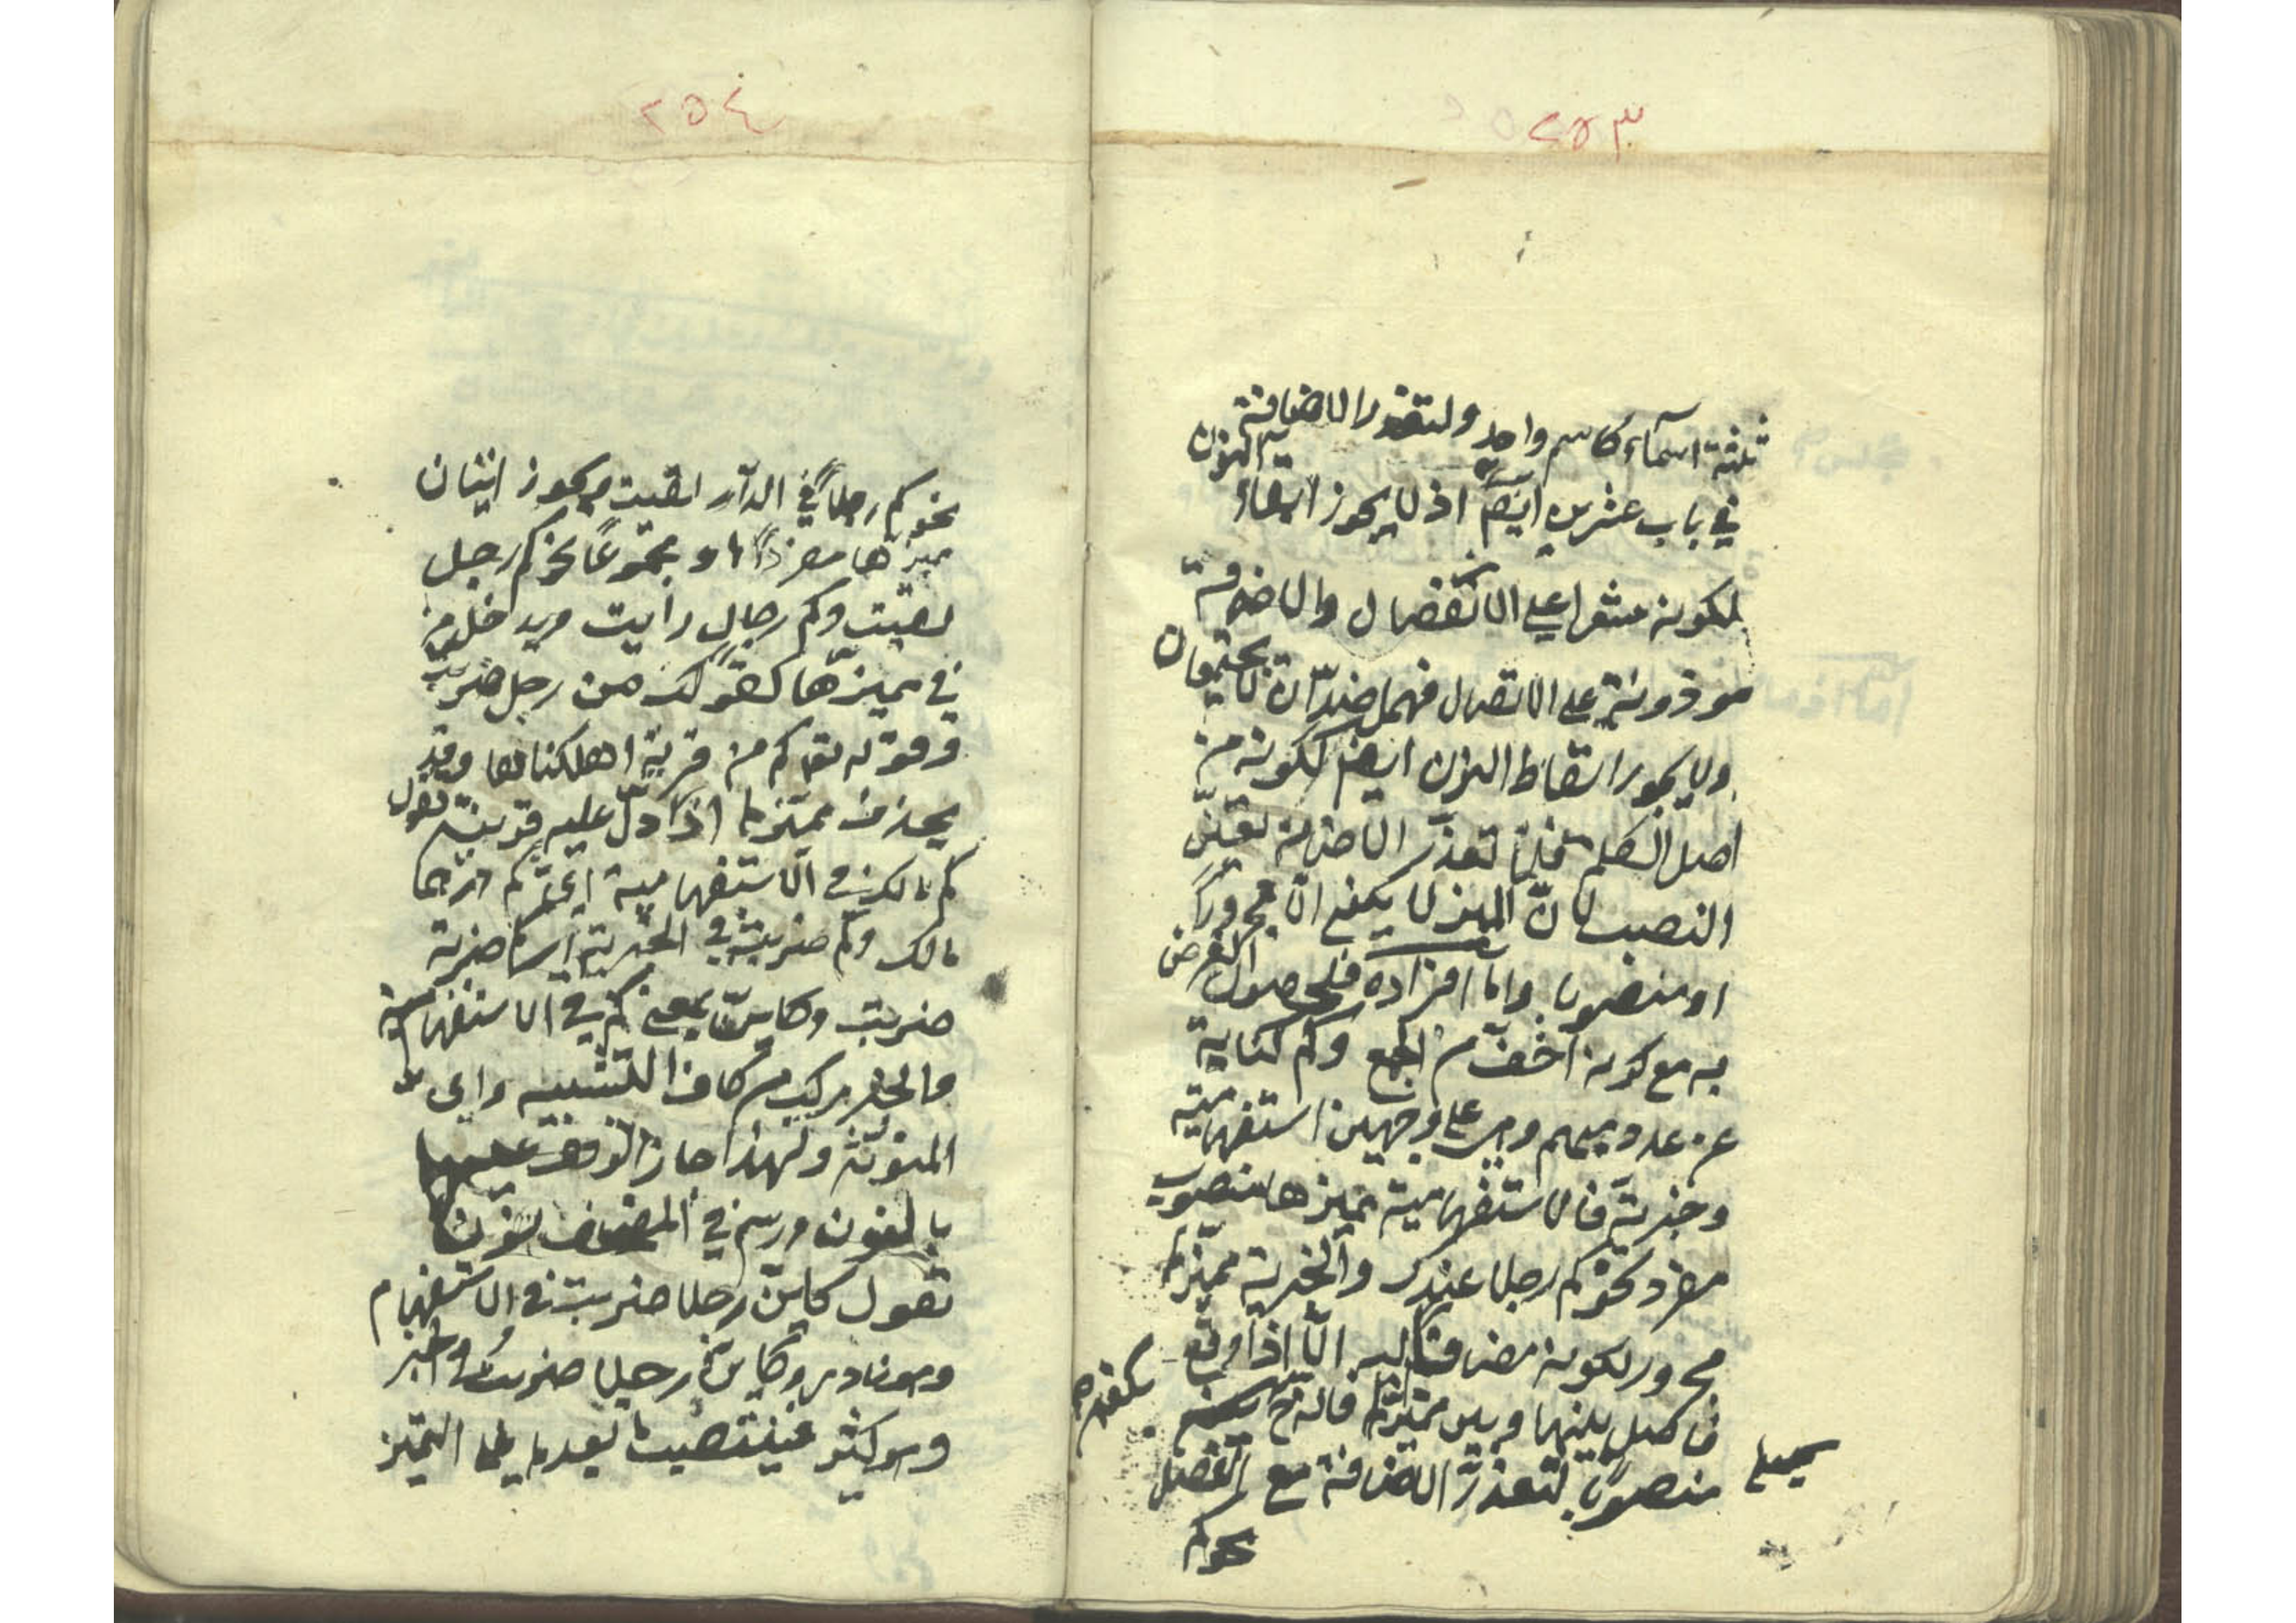 ٢٥٣
ثلثة اسمآء كاسم واحد ولتعذر الاضافة
في باب عشرين ايضا اذ لا يجوز ابقاء النون
لكونه مشعرا على الانفصال والاضافة
موذونة على الاتصال فهما ضدّان لا يجتمعان
ولا يجوز اسقاط النون ايضا لكونه من
اصل الكلمة فلمّا تعذر الاضافة تعيّن
النصب لانّ المميز لا يكون الّا مجرورًا
او منصوبا وامّا افراده فلحصول الغرض
به مع كونه اخفّ من الجمع وكم كناية
عن عدد مبهم وهى على وجهين استفهامية
وخبرية فالاستفهامية مميزها منصوب
مفرد نحو كم رجلا عندك والخبرية مميّزها
مجرور لكونه مضافا اليه الّا اذا وقع
فاصل بينها وبين مميّزها فانه ح
منصوبًا لتعذّر الاضافة مع الفصل
نحو كم
٢٥٤
نحو كم رجلاً في الدآر لقيت ويجوز اتيان
مميزها مفردًا او مجموعًا نحو كم رجل
لقيت وكم رجال رايت ويدخل من
في مميزّها كقولك من رجل ضربت
وقوله تعـ كم من قرية اهلكناها وقد
يحذف مميّزها اذا دلّ عليه قرينة تقول
كم مالك في الاستفهامية اى كم درهما
مالك وكم ضربت في الخبرية اى كم ضربة
ضربت وكاينّ بمعنى كم في الاستفهامية
والخبر مركب من كاف التشبيه واى
المنونة ولهذا جاز الوقف عليها
بالنون ورسم في المصحف نونا
تقول كاينّ رجلا ضربت في الاستفهام
وهو نادر وكاين رجلا ضربت في الخبر
وهو كثير فينتصب ما بعدها على التميز